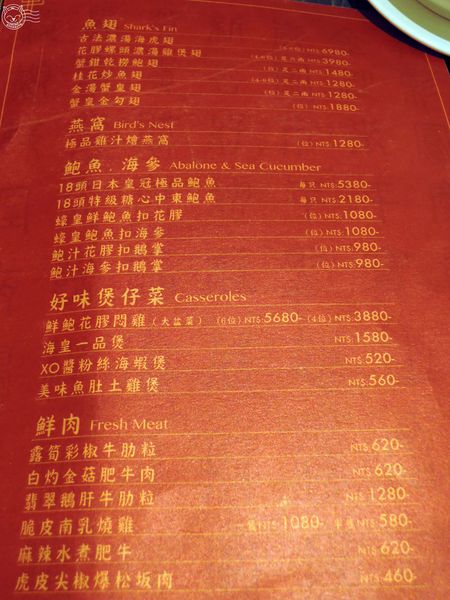 魚翅 Shark's Fin
古法濃湯海虎翅 (4-6位) NT$6980-
花膠螺頭濃湯雞煲翅 (4-6位) NT$3980-
蟹鉗乾撈鮑翅 (位) 足二兩 NT$1480-
桂花炒魚翅 (4-6位) 足二兩 NT$1280-
金湯蟹皇翅 (位) 足二兩 NT$1280-
蟹皇金勾翅 (位) NT$1880-
燕窩 Bird's Nest
極品雞汁燴燕窩 (位) NT$1280-
鮑魚．海參 Abalone & Sea Cucumber
18頭日本皇冠極品鮑魚 每只 NT$5380-
18頭特級糖心中東鮑魚 每只 NT$2180-
蠔皇鮮鮑魚扣花膠 (位) NT$1080-
蠔皇鮑魚扣海參 (位) NT$1080-
鮑汁花膠扣鵝掌 (位) NT$980-
鮑汁海參扣鵝掌 (位) NT$980-
好味煲仔菜 Casseroles
鮮鮑花膠悶雞 (大盆菜) (6位) NT$5680- (4位) NT$3880-
海皇一品煲 NT$1580-
XO醬粉絲海蝦煲 NT$520-
美味魚肚土雞煲 NT$560-
鮮肉 Fresh Meat
露筍彩椒牛肋粒 NT$620-
白灼金菇肥牛肉 NT$620-
翡翠鵝肝牛肋粒 NT$1280-
脆皮南乳燒雞 一隻 NT$1080- 半隻 NT$580-
麻辣水煮肥牛 NT$620-
虎皮尖椒爆松坂肉 NT$460-